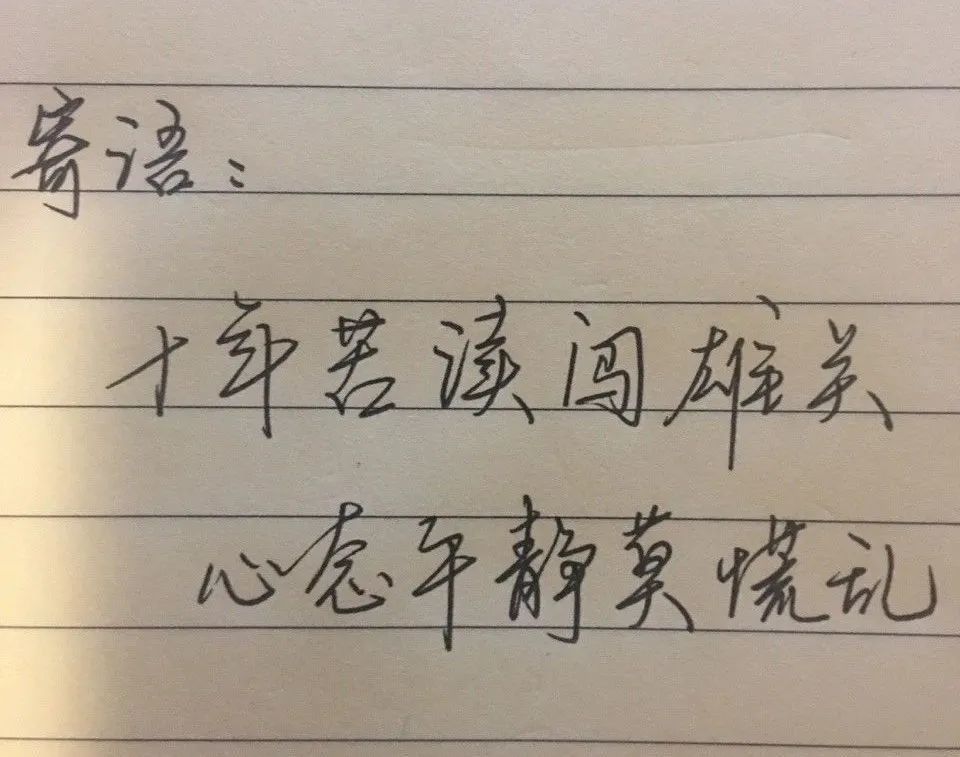 寄语：
十年苦读闯雄关
心态平静莫慌乱